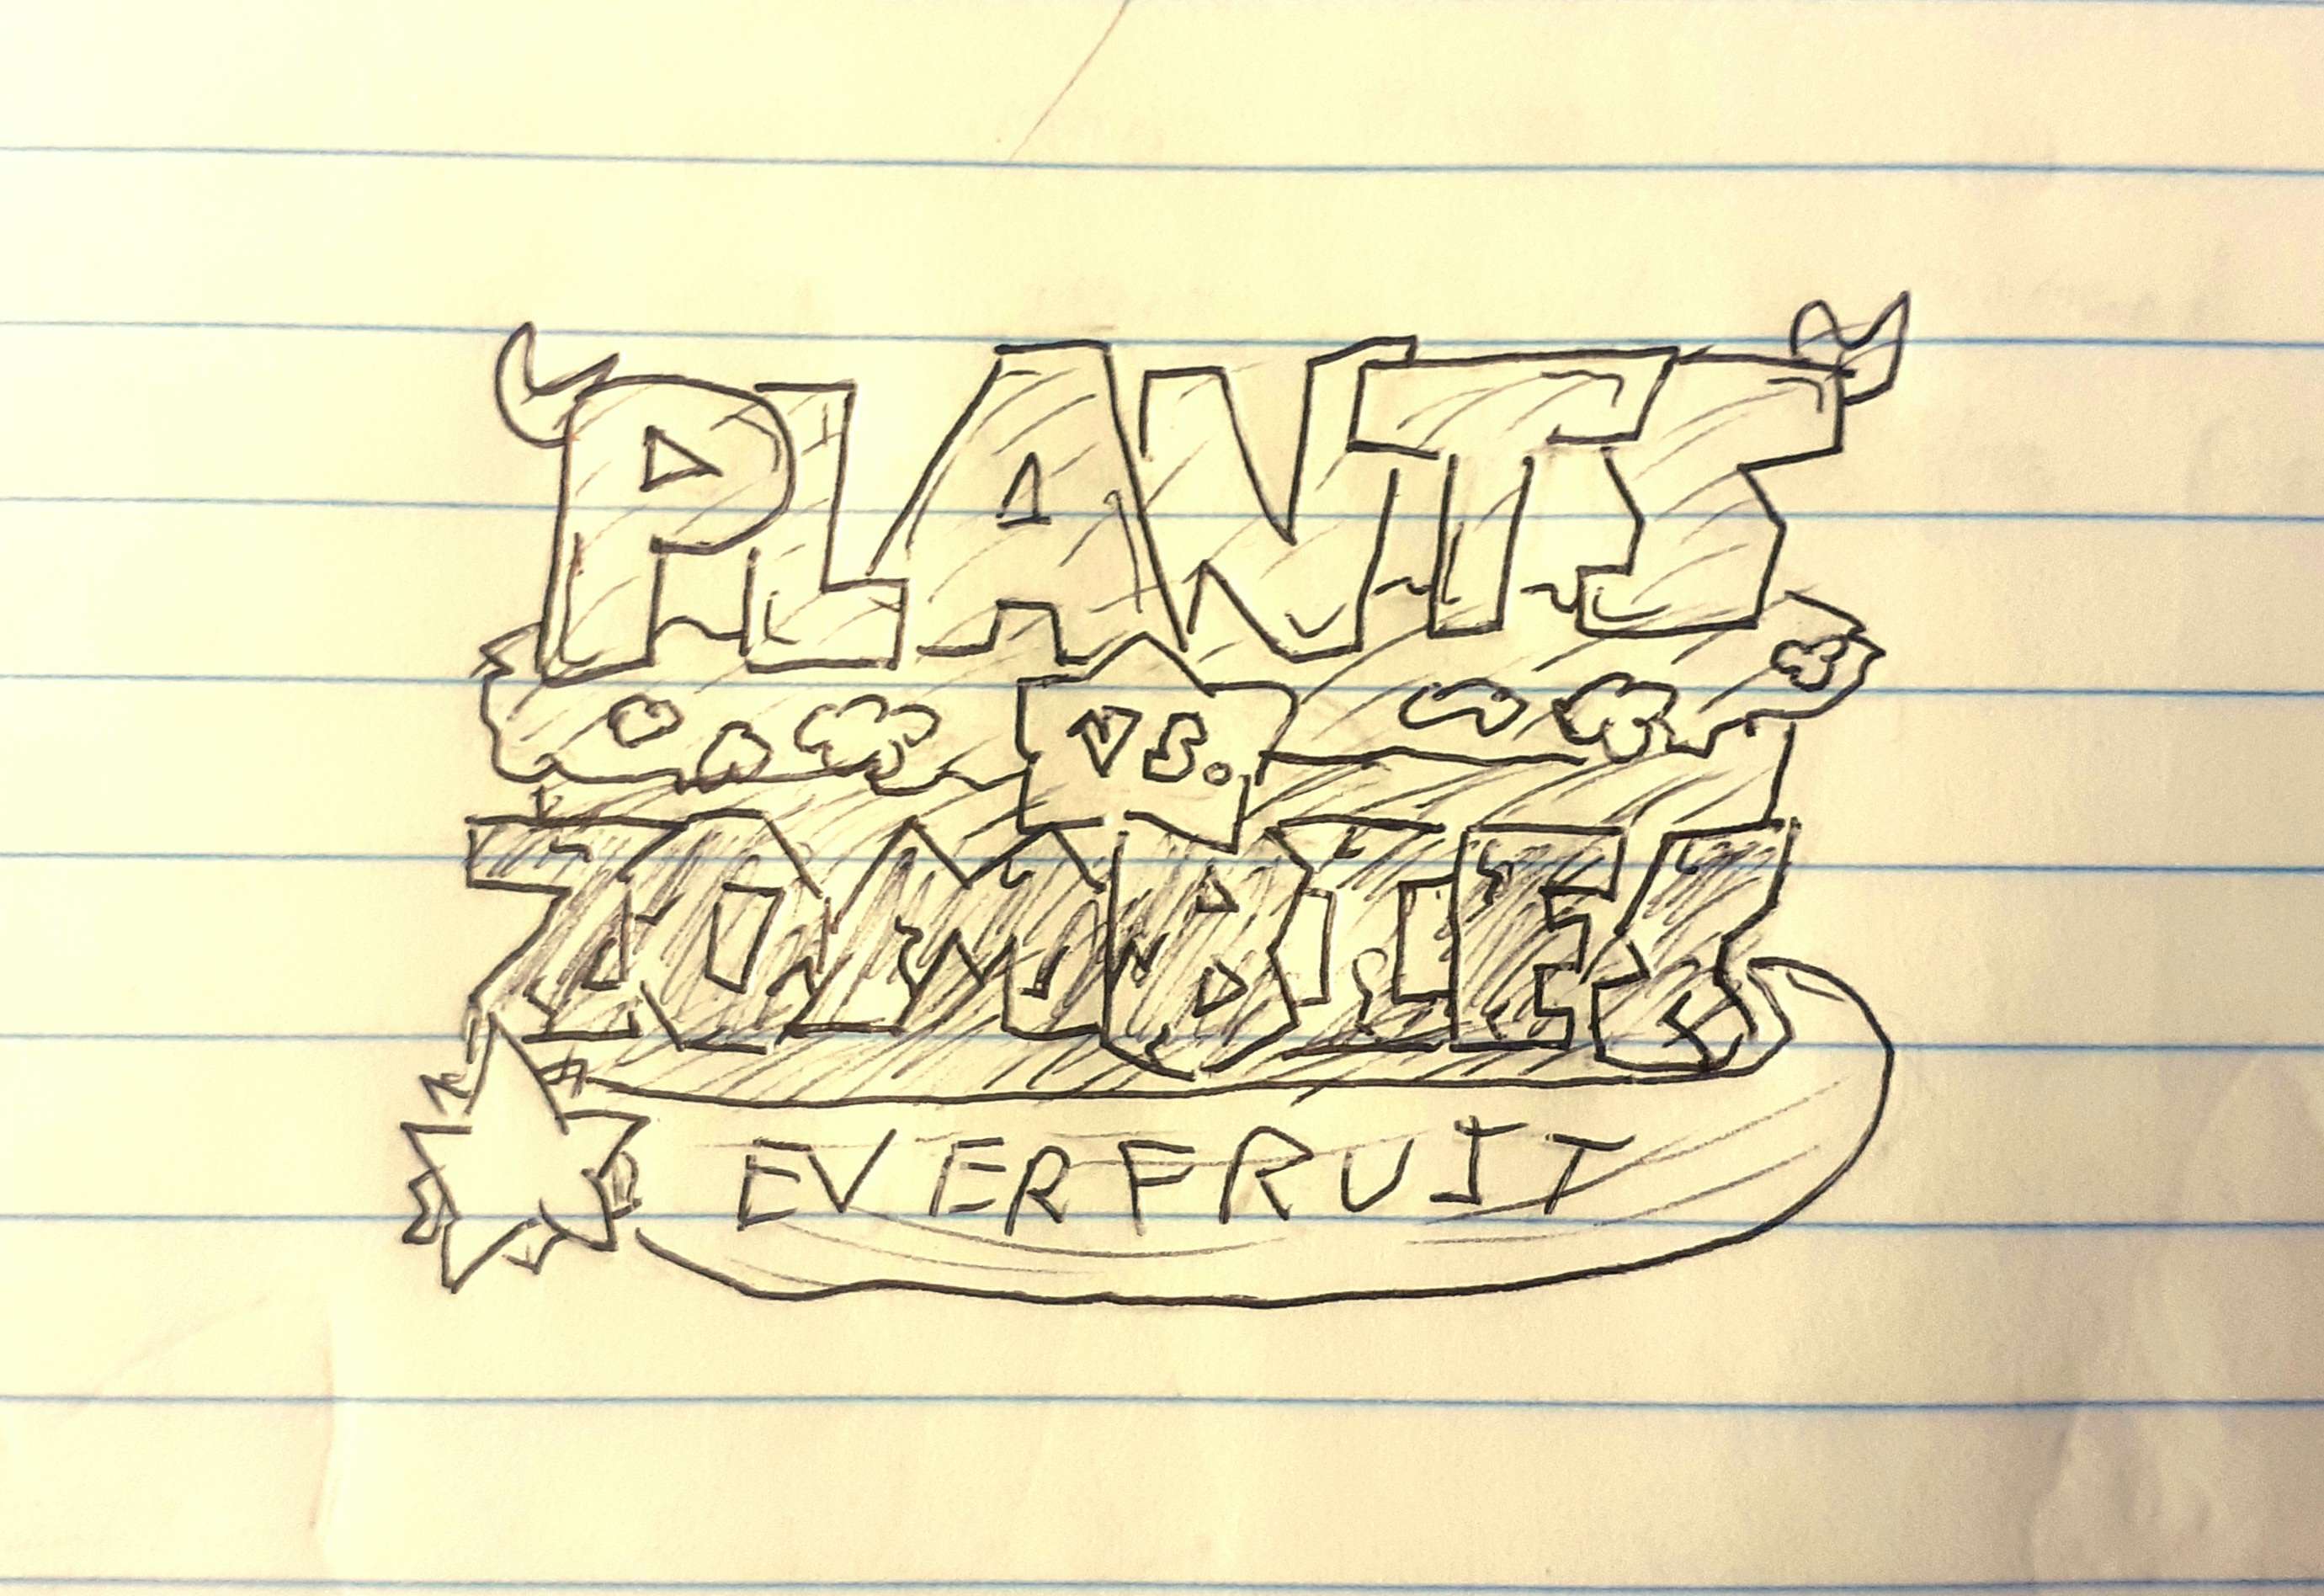 PLANTS
VS.
ZOMBIES
EVERFRUIT